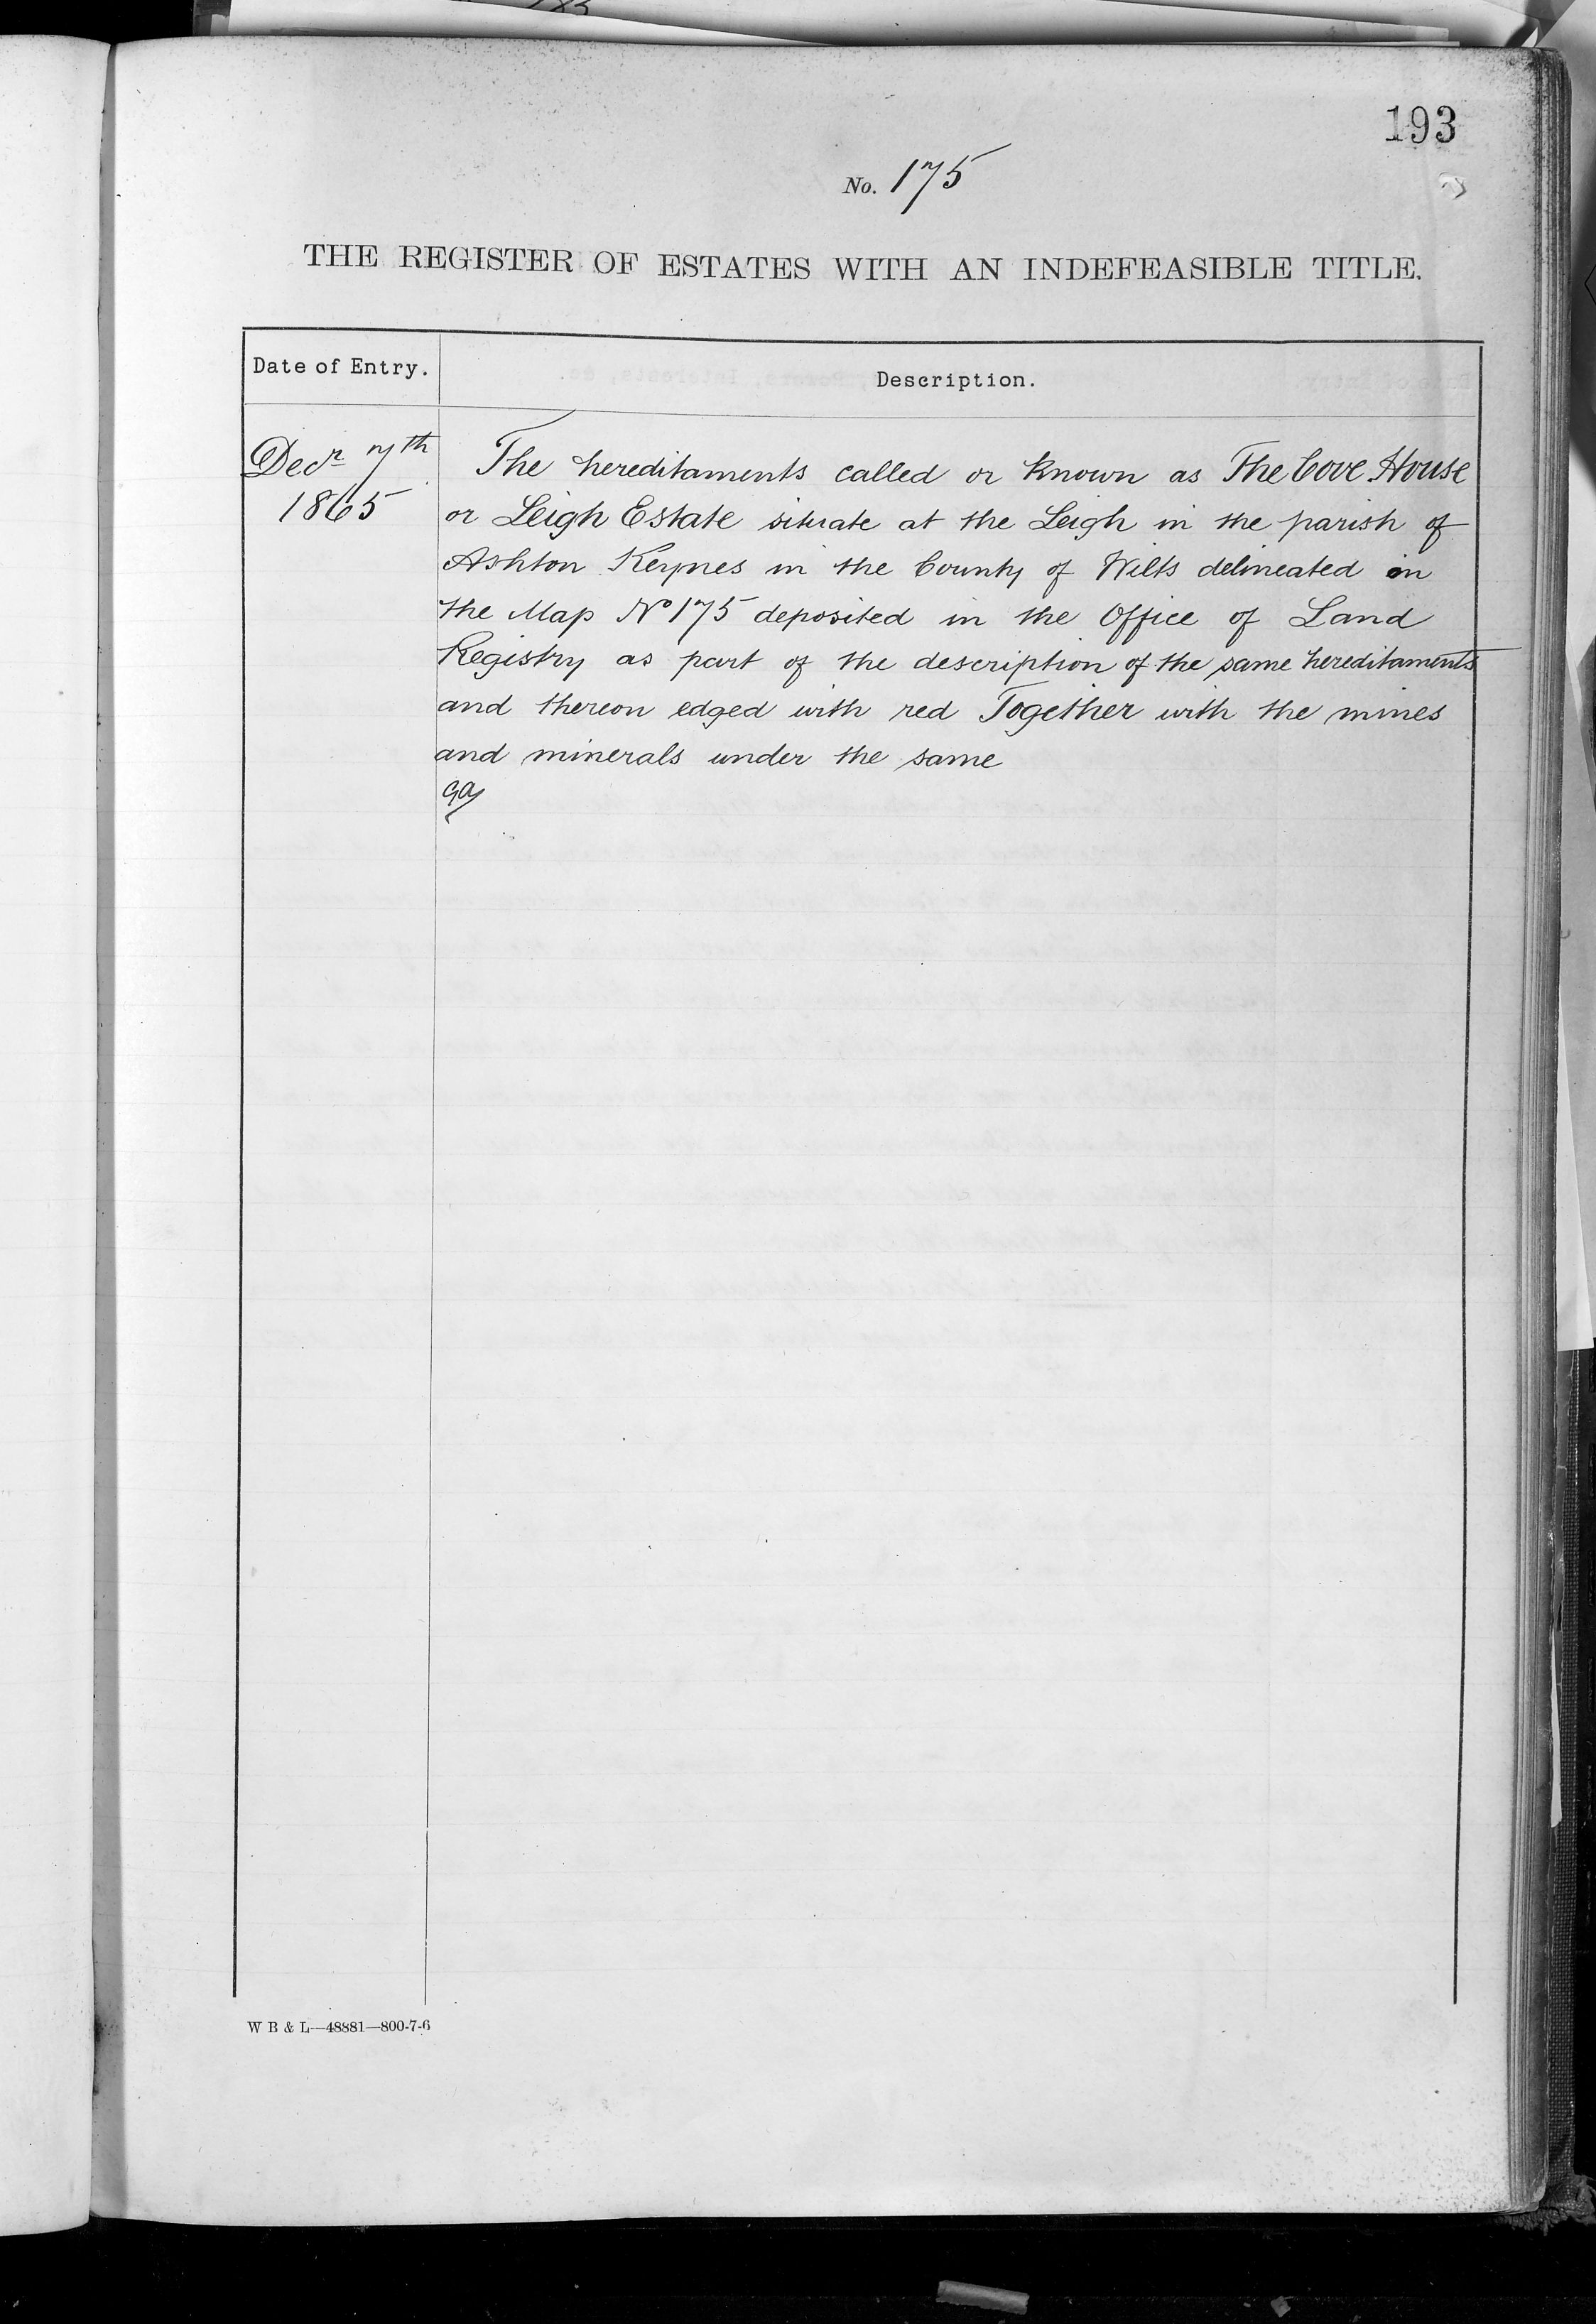 193
No. 175
THE REGISTER OF ESTATES WITH AN INDEFEASIBLE TITLE.
Date of Entry.
Description.
Decr 7th
1865
The hereditaments called or known as The Cove House
or Leigh Estate situate at the Leigh in the parish of
Ashton Keynes in the County of Wilts delineated on
the Map No 175 deposited in the Office of Land
Registry as part of the description of the same hereditaments
and thereon edged with red Together with the mines
and minerals under the same
W B & L—48881—800-7-6